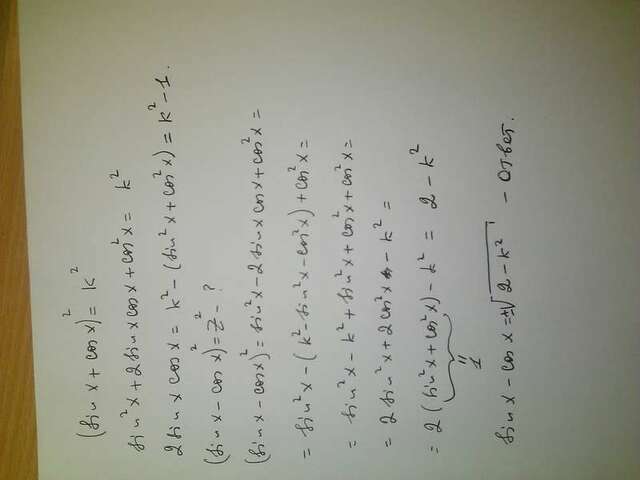 (sin x + cos x)² = k²
sin²x + 2 sin x cos x + cos²x = k²
2 sin x cos x = k² - (sin²x + cos²x) = k² - 1.
(sin x - cos x)² = z² - ?
(sin x - cos x)² = sin²x - 2 sin x cos x + cos²x =
= sin²x - (k² - sin²x - cos²x) + cos²x =
= sin²x - k² + sin²x + cos²x + cos²x =
= 2 sin²x + 2 cos²x - k² =
= 2 (sin²x + cos²x) - k² = 2 - k²
"
1
sin x - cos x = ±√2 - k² - Ответ.